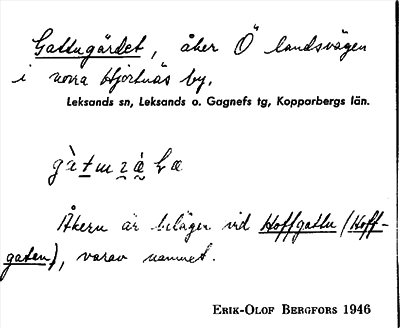 Gattugärdet, åker Ö landsvägen
i norra Hjortnäs by.
Leksands sn, Leksands o. Gagnefs tg, Kopparbergs län.
Åkern är belägen vid Hoffgattu (Hoff-
gatan), varav namnet.
ERIK-OLOF BERGFORS 1946